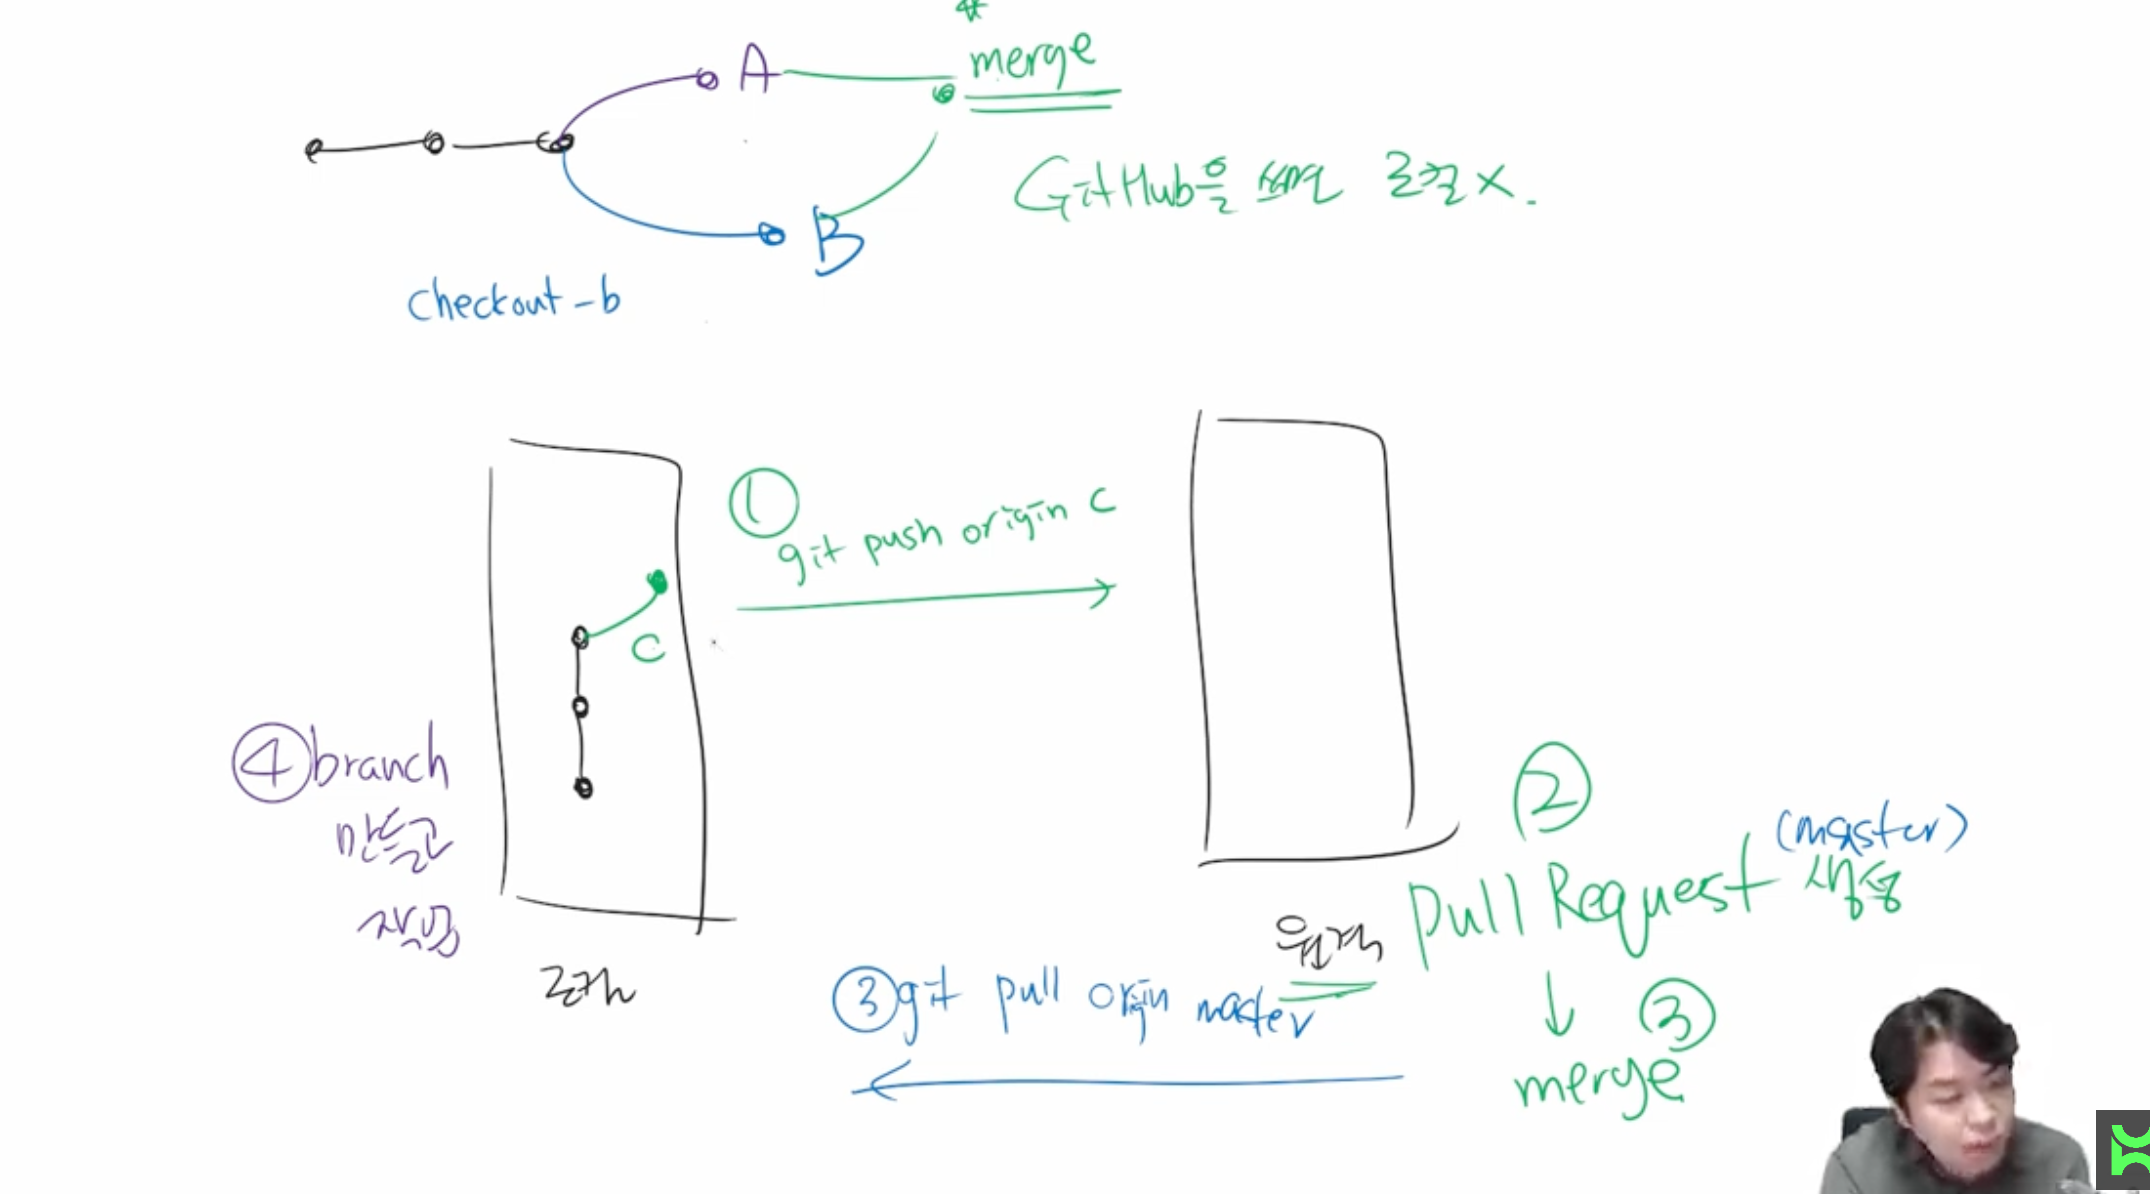 *
merge
A
GitHub을 쓰면 로컬 X.
B
checkout -b
①
git push origin C
C
④ branch
만들고
작업
로컬
②
(master)
Pull Request 생성
원격
③ git pull origin master
③
merge